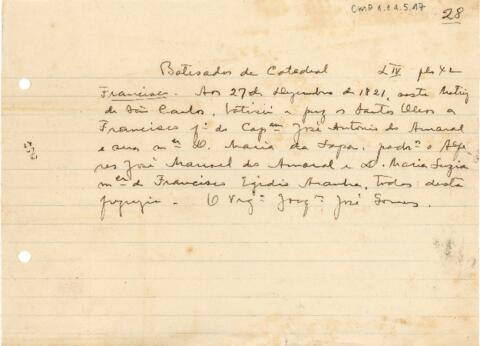 CMP 1.1.4.5.17
28
Batisados da Catedral L IV pls XL
Francisco. Aos 27 de dezembro de 1821, nesta Matriz
de São Carlos, batisei e puz os Santos Oleos a
Francisco f.º do Cap.am José Antonio do Amaral
e sua m.er D. Maria da Lapa, padr.os o Alfe
res José Manoel do Amaral e D. Maria Luzia
m.er de Francisco Egidio Aranha, todos desta
freguezia. O Vig.º Joaq.m José Gomes.